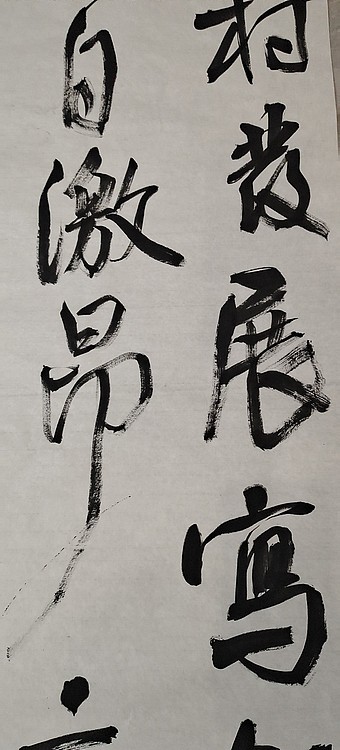 村發展寫
自激昂